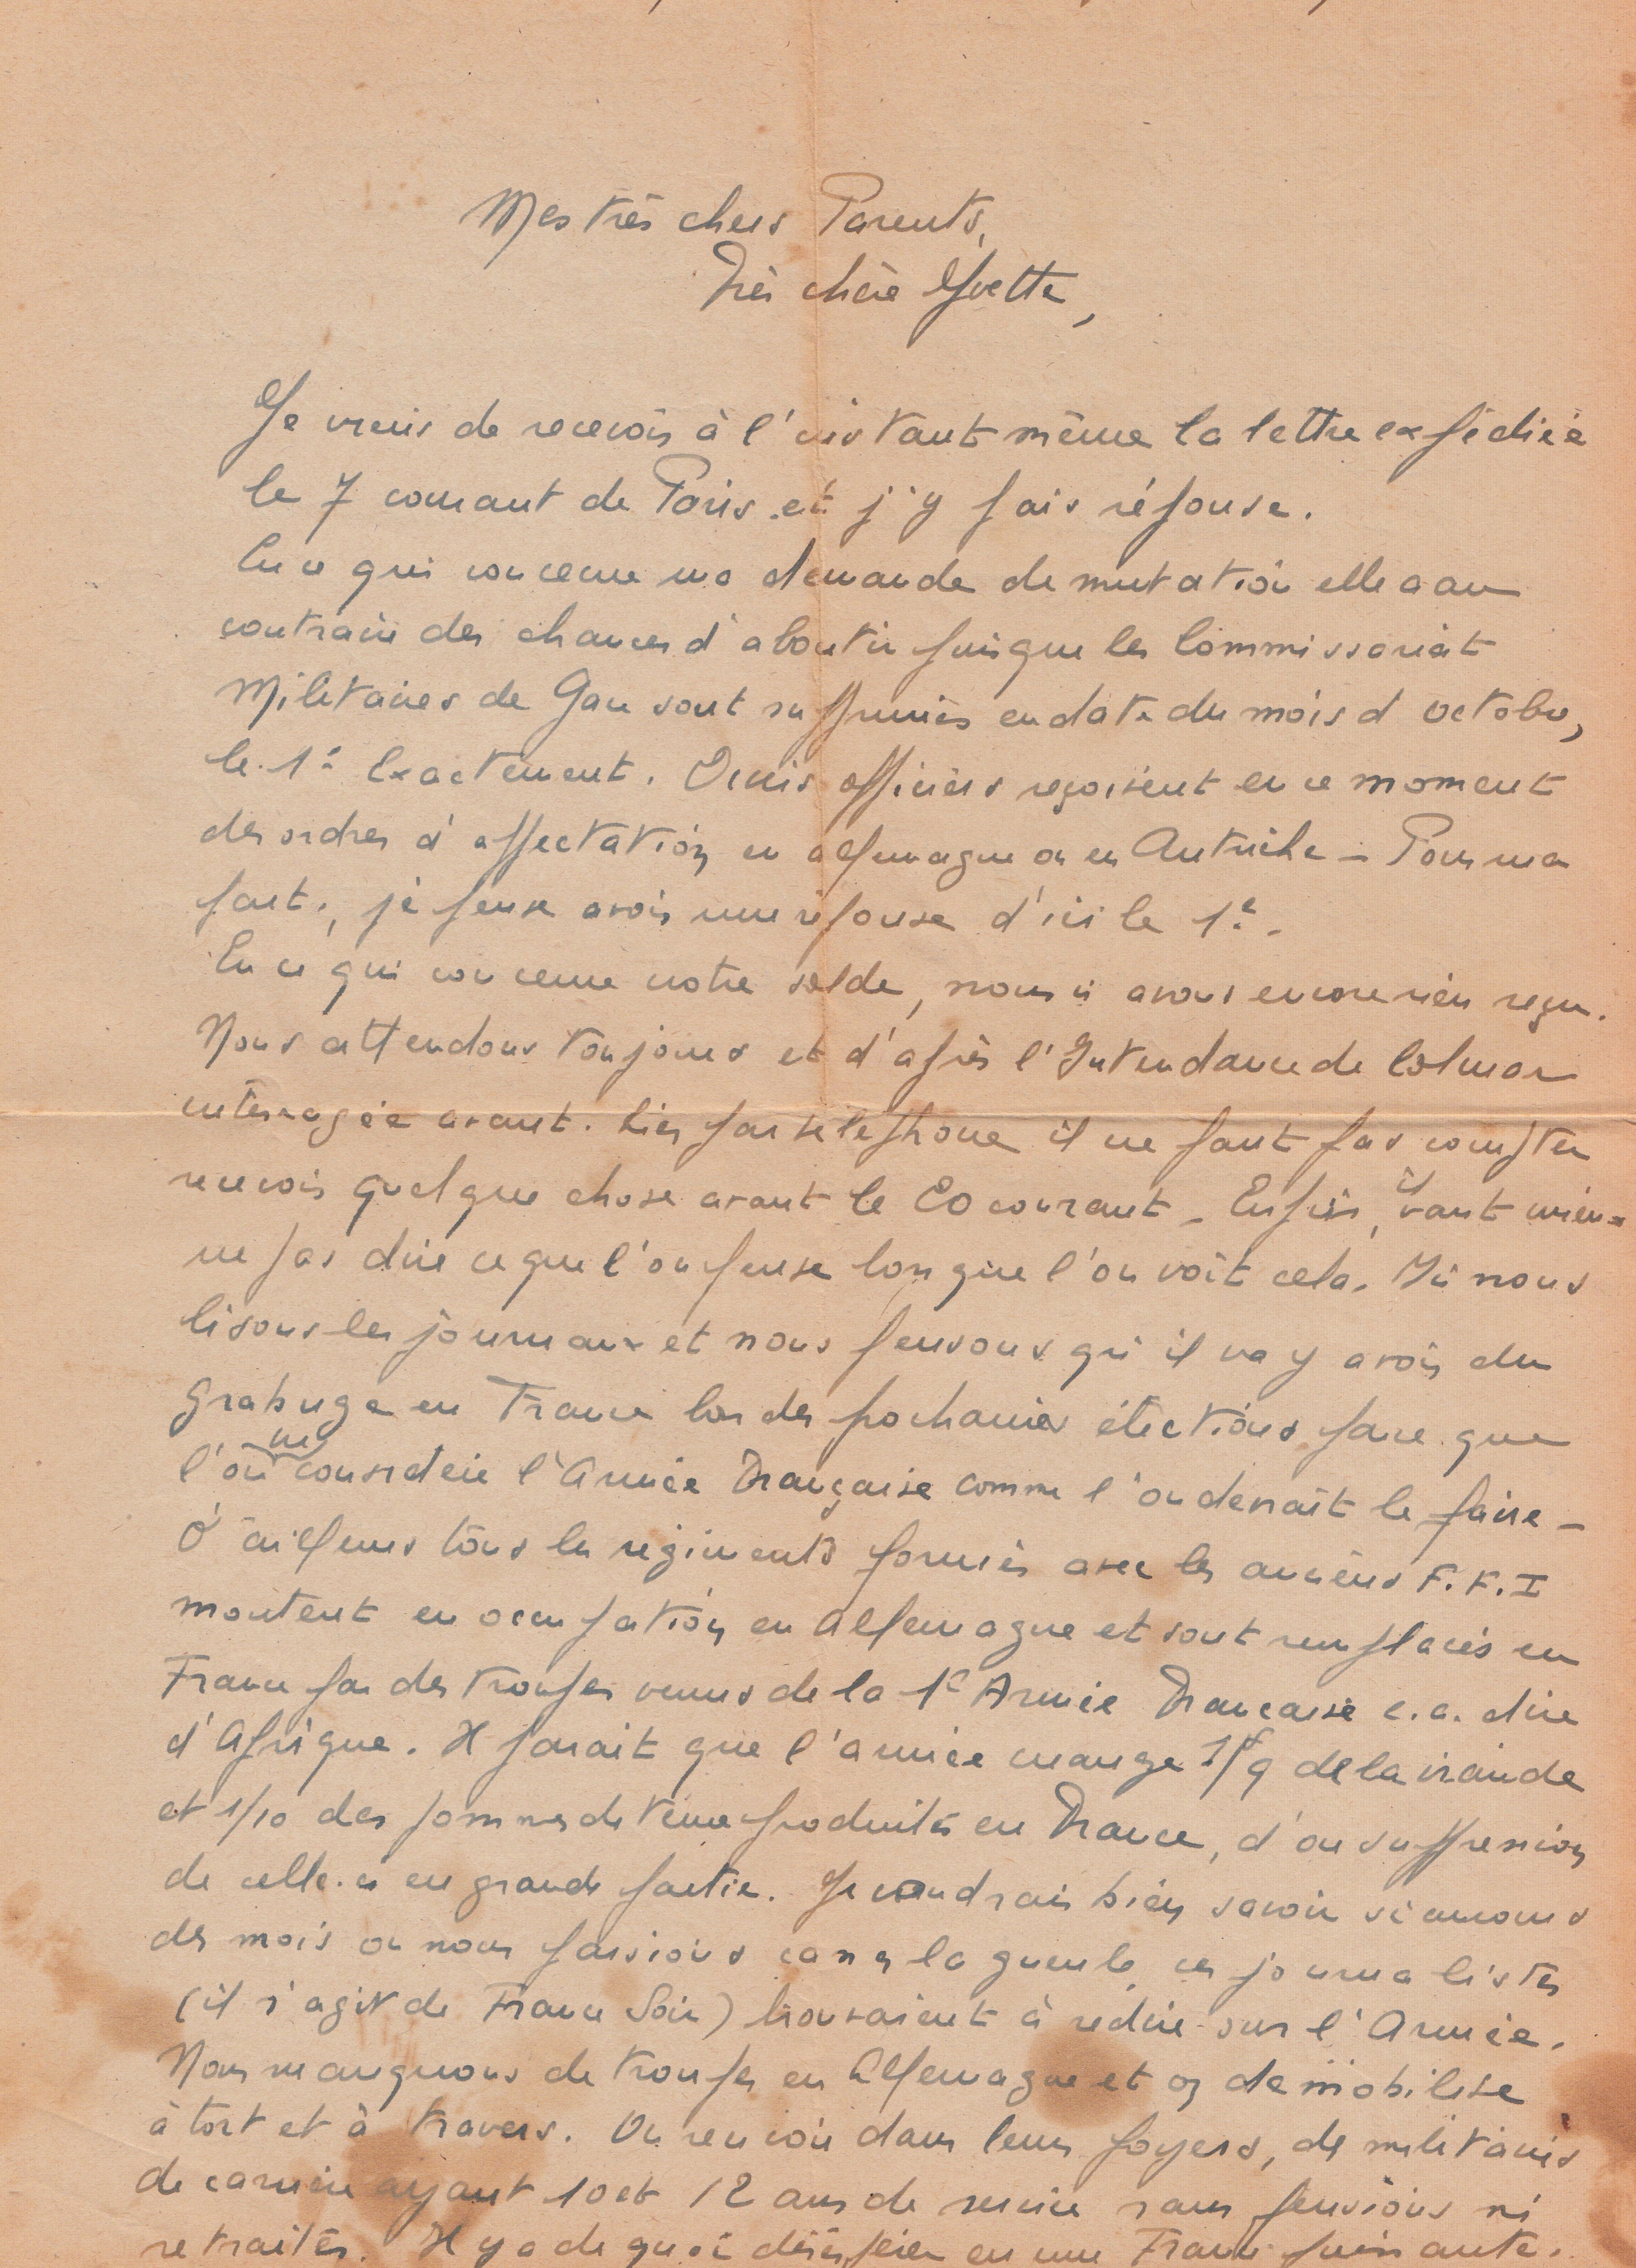 Mes très chers Parents,
Très chère Yvette,
Je viens de recevoir à l'instant même la lettre expédiée
le 7 courant de Paris et j'y fais réponse.
En ce qui concerne ma demande de mutation elle a au
contraire des chances d'aboutir puisque les Commissariat
Militaires de Gare sont supprimés en date du mois d'octobre,
le 1er Exactement. Divers officiers reçoivent en ce moment
des ordres d'affectation en allemagne ou en Autriche – Pour ma
part, je pense avoir une réponse d'ici le 1er.
En ce qui concerne notre solde, nous n'avons encore rien reçu.
Nous attendons toujours et d'après l'Intendance de Colmar
interrogée avant-hier par téléphone il ne faut pas compter
recevoir quelque chose avant le 20 courant – Enfin, il vaut mieux
ne pas dire ce que l'on pense lorsque l'on voit cela. Ici nous
lisons les journaux et nous pensons qu'il va y avoir du
Grabuge en France lors des prochaines élections parce que
l'on ne considère l'Armée Française comme l'on devrait le faire –
D'ailleurs tous les régiments formés avec les anciens F.F.I
montent en occupation en Allemagne et sont remplacés en
France par des troupes venus de la 1e Armée Française c.a. dire
d'Afrique. Il parait que l'armée mange 1/9 de la viande
et 1/10 des pommes de terre produites en France, d'ou suppression
de celle-ci en grande partie. Je voudrais bien savoir si au cours
des mois ou nous faisions la gueule, ces journalistes
(il s'agit de France Soir) trouvaient à redire sur l'Armée.
Nous manquons de troupes en Allemagne et on démobilise
à tort et à travers. On renvoie dans leurs foyers, des militaires
de carrière ayant 10 et 12 ans de service sans pensions ni
retraites. Il y a de quoi désespérer en une France puissante.